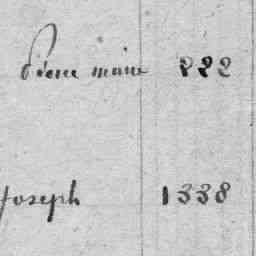 pierre marie 222
Joseph 1338